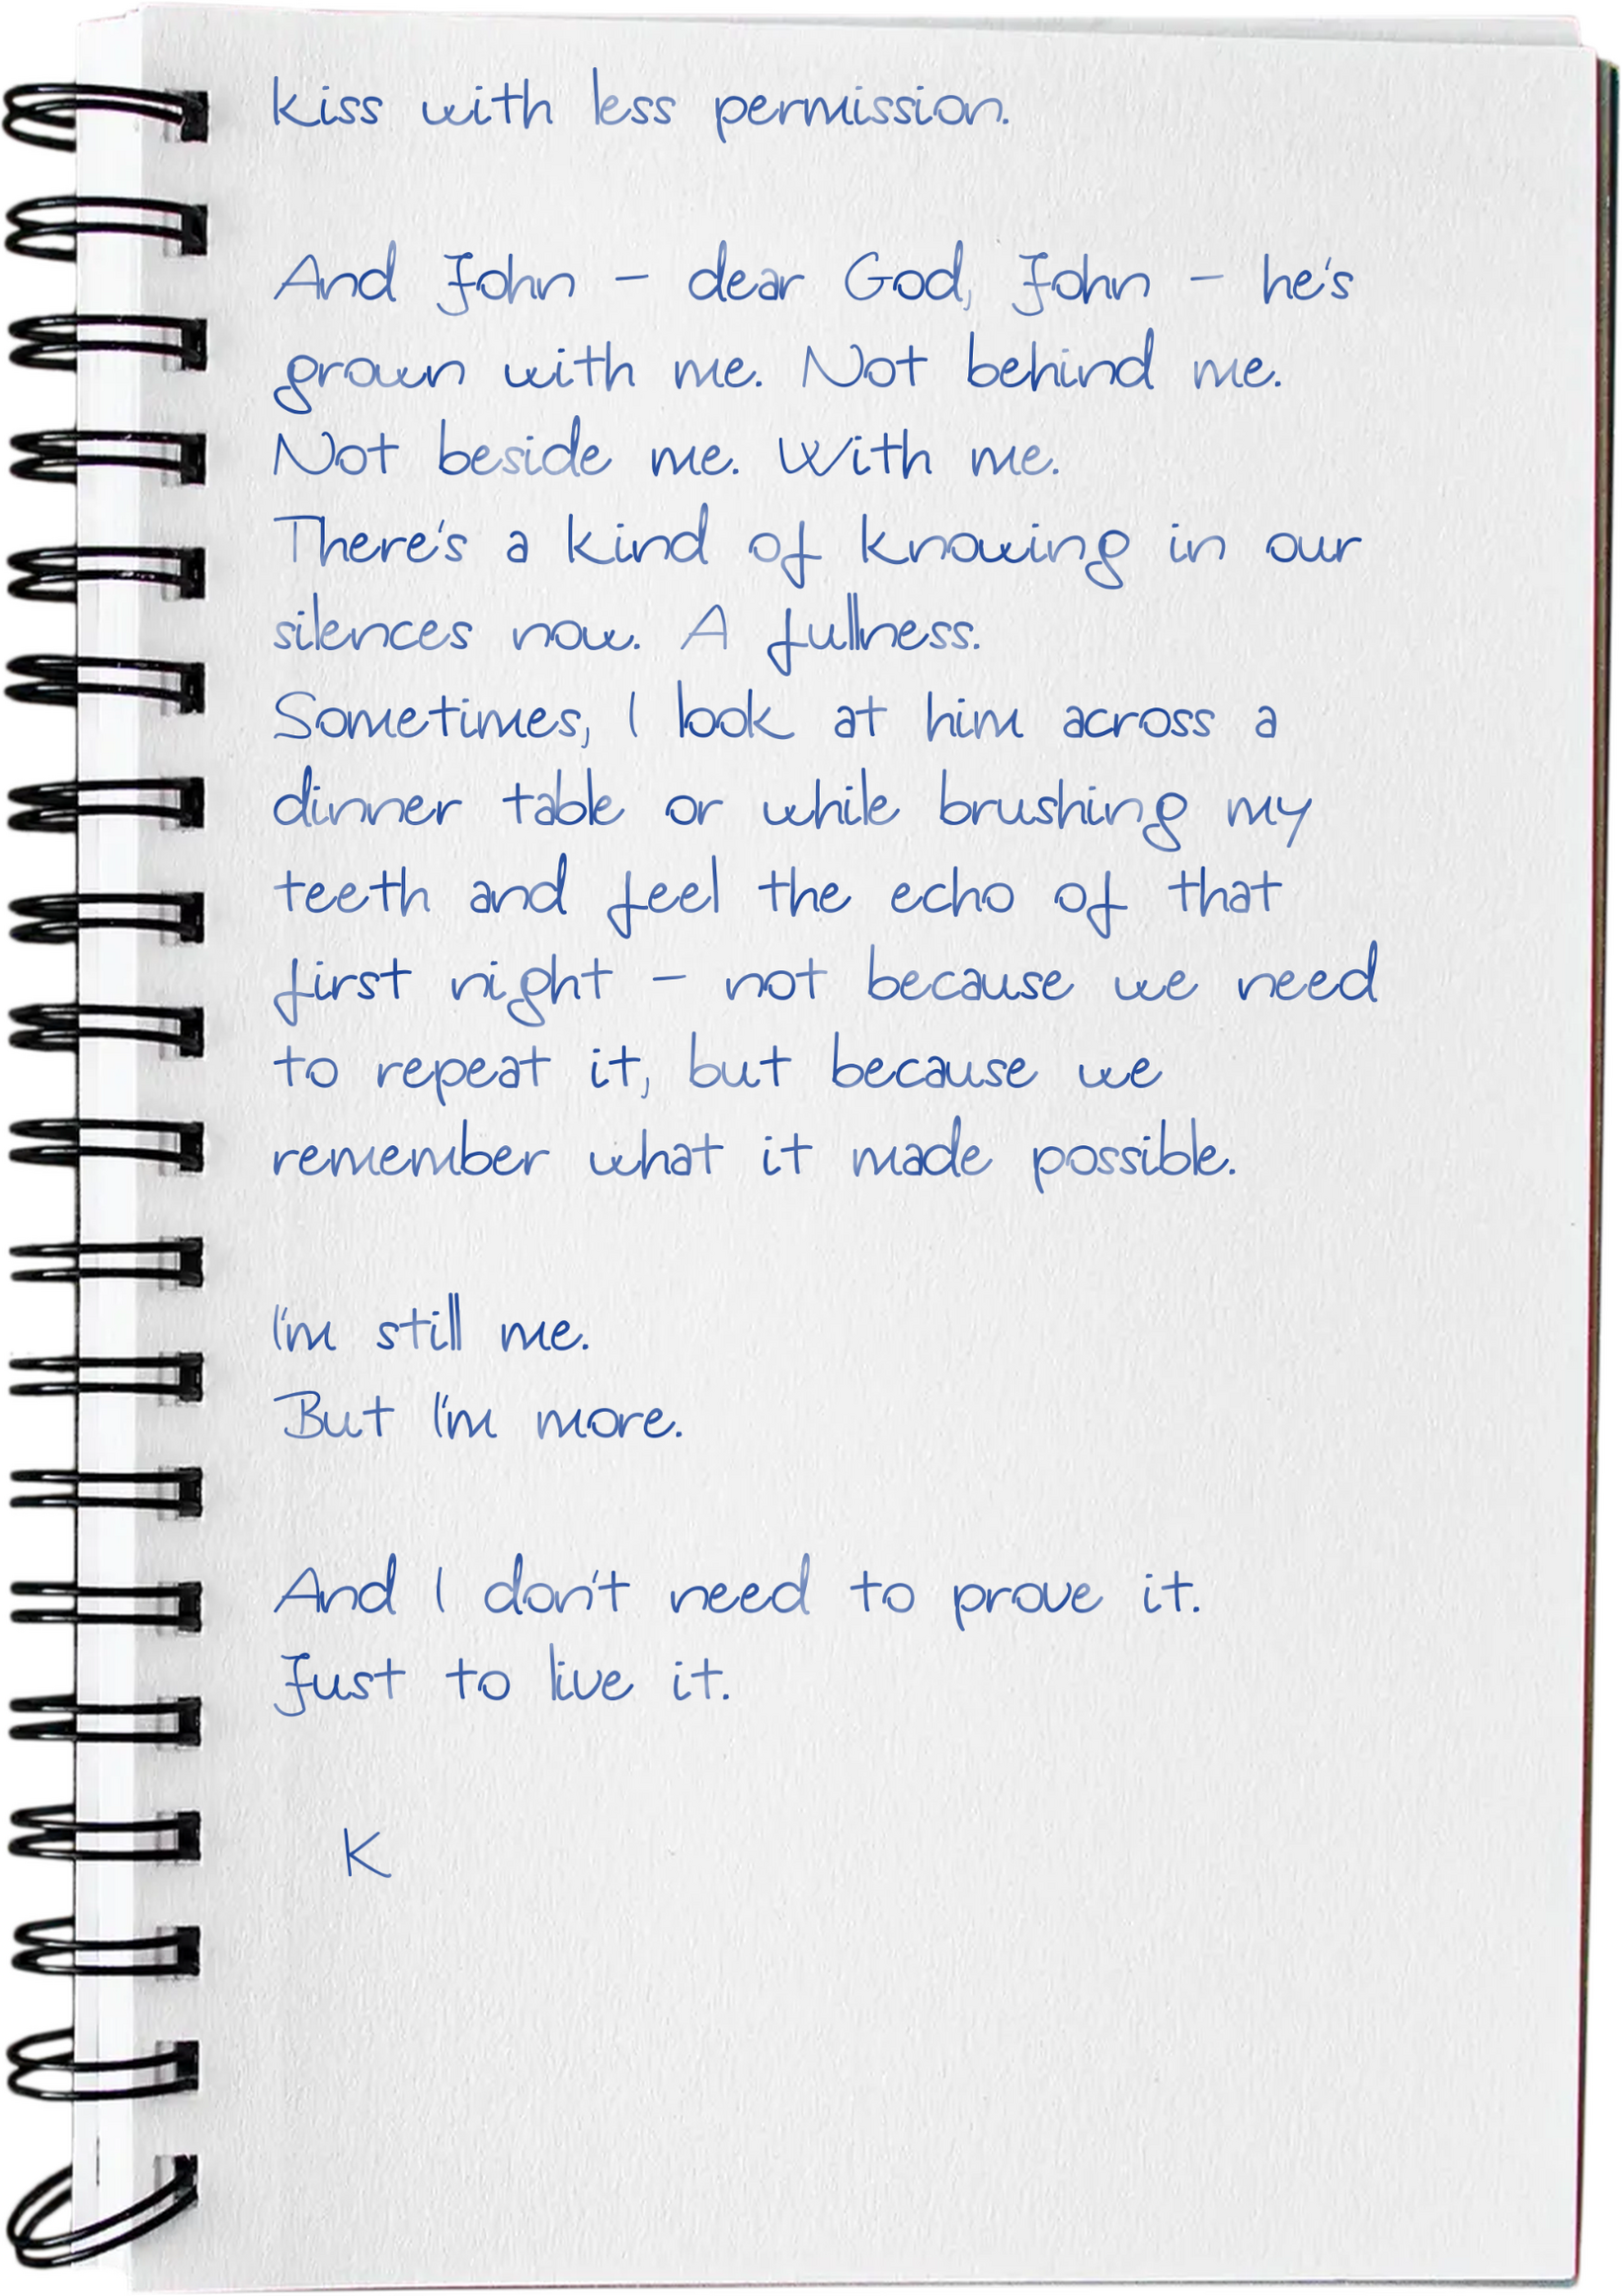 kiss with less permission.
And John – dear God, John – he's
grown with me. Not behind me.
Not beside me. With me.
There's a kind of knowing in our
silences now. A fullness.
Sometimes, I look at him across a
dinner table or while brushing my
teeth and feel the echo of that
first night – not because we need
to repeat it, but because we
remember what it made possible.
I'm still me.
But I'm more.
And I don't need to prove it.
Just to live it.
K